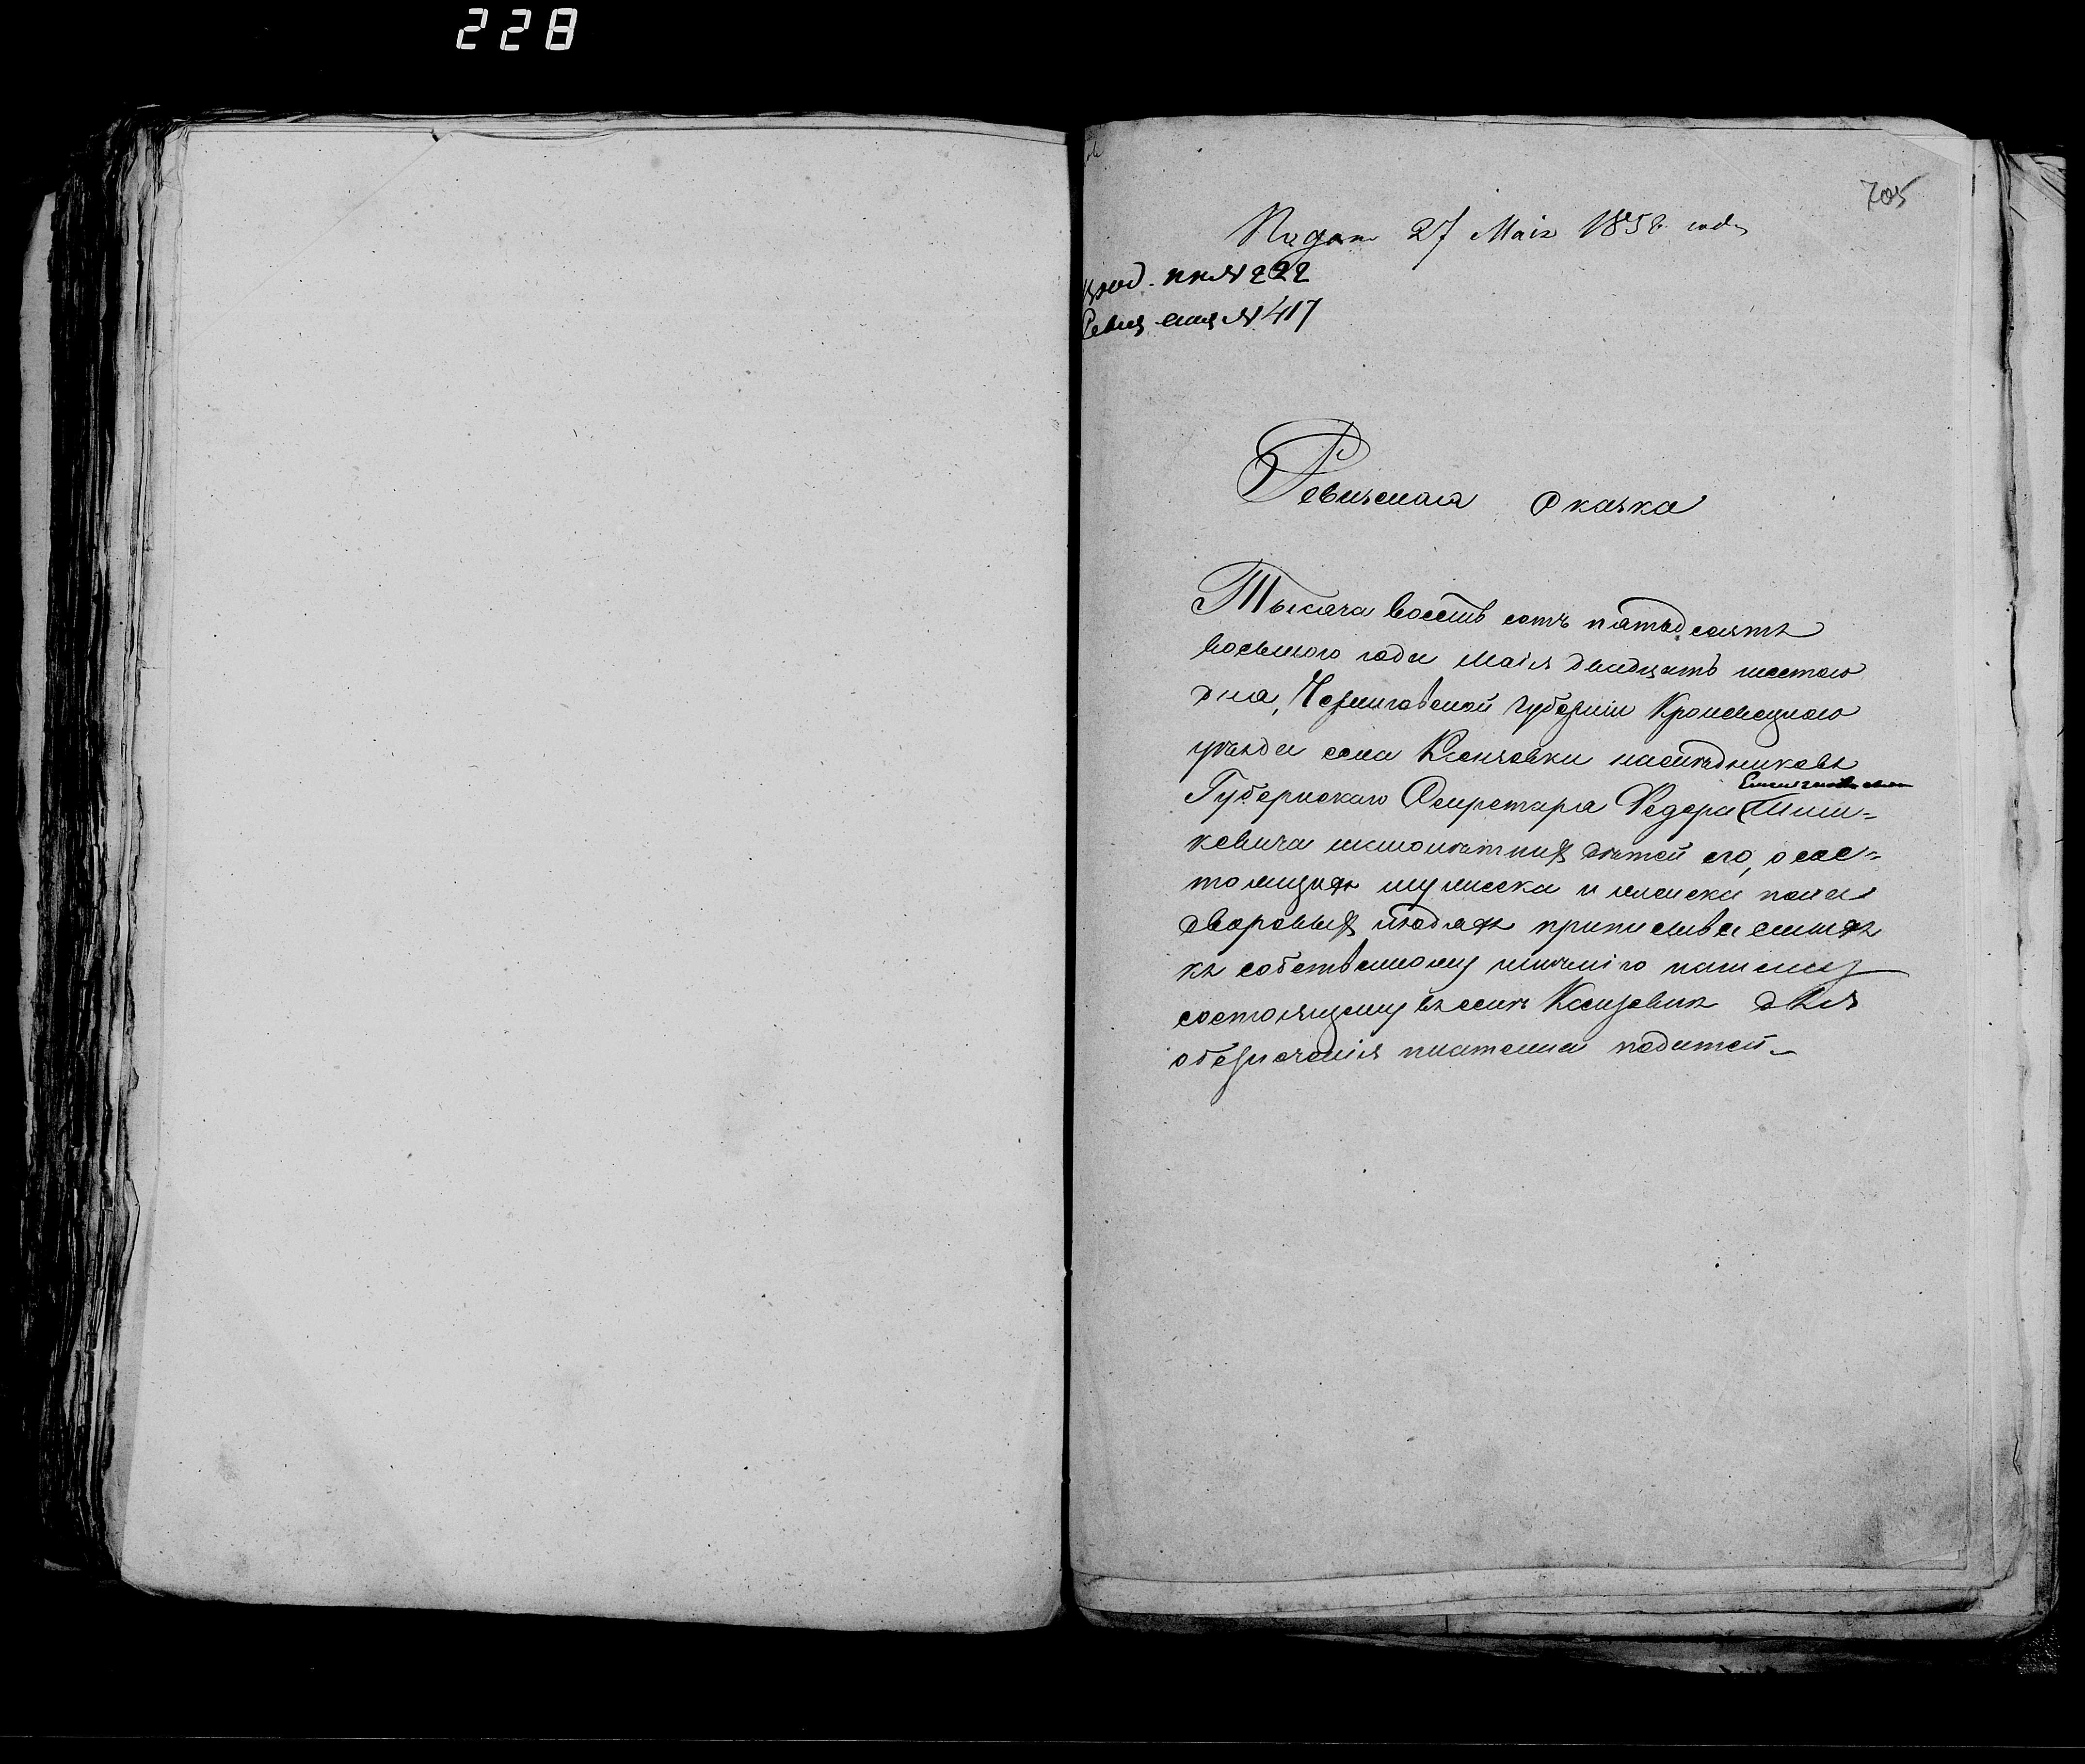 228
705
Подана 27 Маія 1858 года
Вход. кн. № 222
Ревиз. №417
Ревизская Сказка
Тысяча восемь сотъ пятьдесятъ
восьмого года Маія двадцать шестого
дня, Черниговской губерніи Кролевецкого
уѣзда села наслѣдниковъ
Губернскаго Секретаря Федора Шиш-
кевича малолѣтнихъ дѣтей его, о сос-
тоящихъ мужеска и женска пола
дворовыхъ людяхъ приписываемыхъ
къ собственному имѣнію нашему
состоящему въ селѣ для
обезпеченія платежа податей